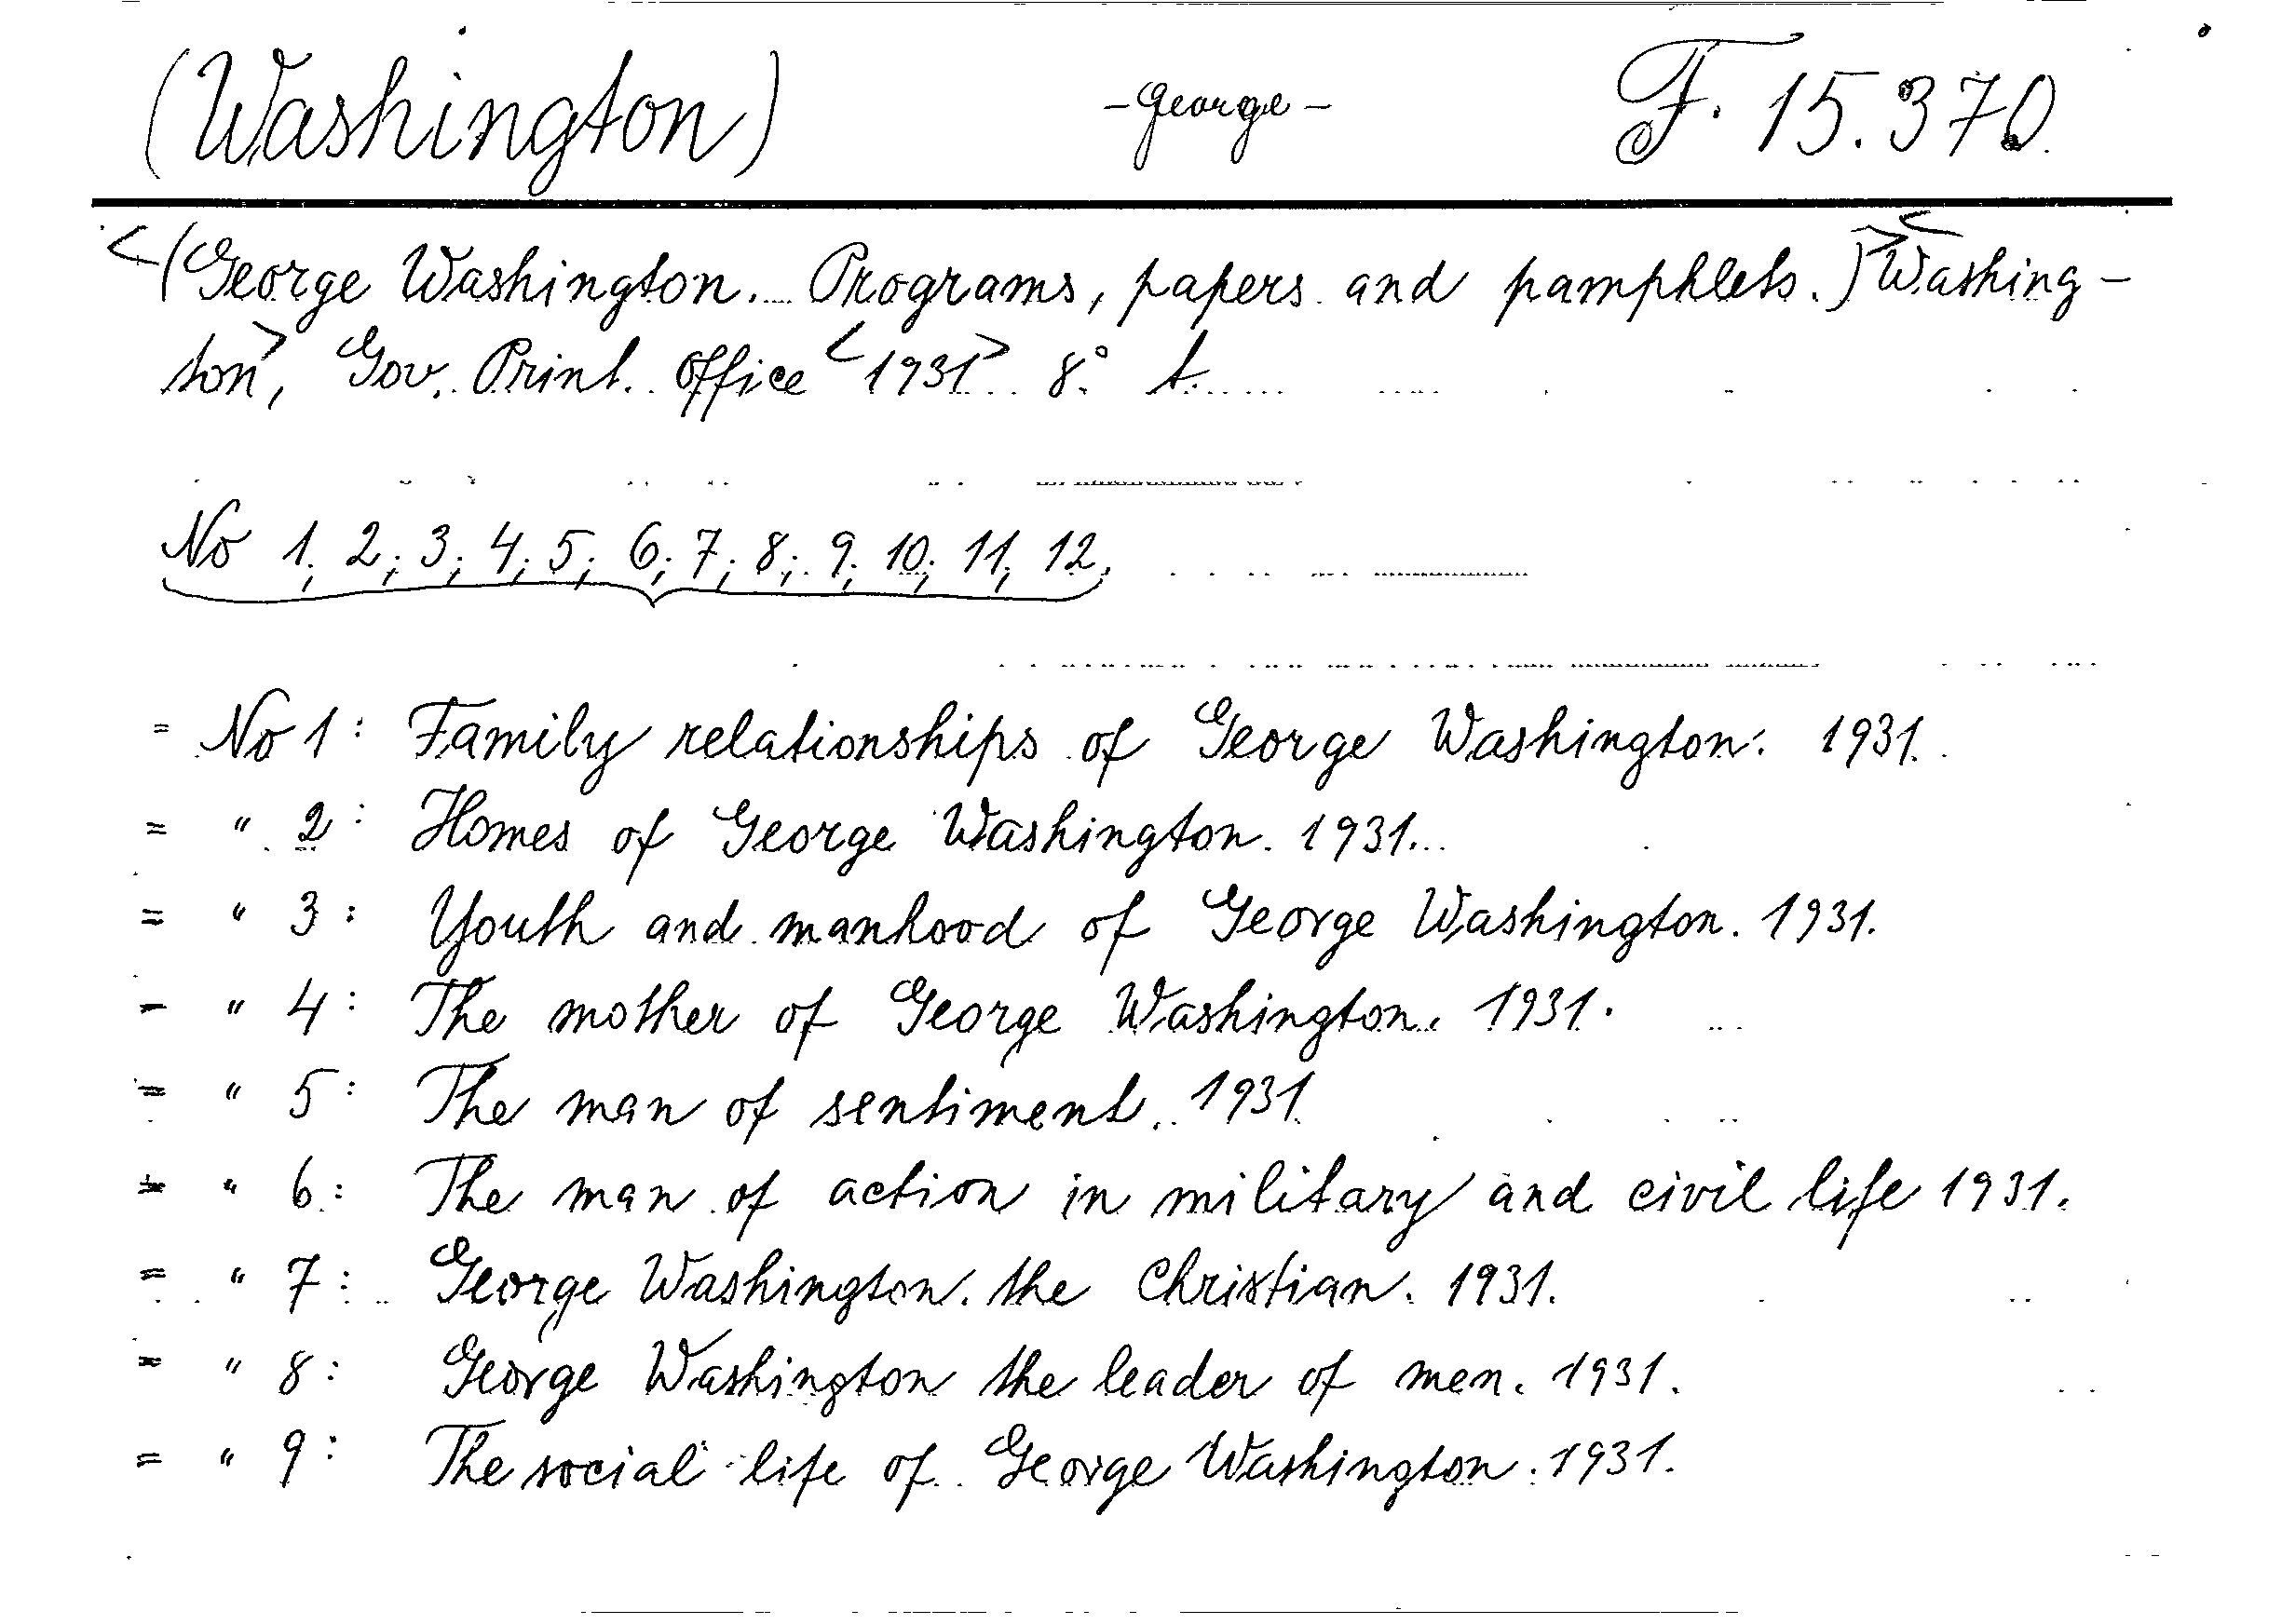 (Washington) -George- F. 15.370.
<(George Washington. Programs, papers and pamphlets.)> <Washing-
ton>, Gov. Print. Office <1931> 8° t.
No 1; 2; 3; 4; 5; 6; 7; 8; 9; 10; 11; 12,
= No 1: Family relationships of George Washington. 1931.
= " 2: Homes of George Washington. 1931.
= " 3: Youth and manhood of George Washington. 1931.
= " 4: The mother of George Washington. 1931.
= " 5: The man of sentiment. 1931.
= " 6: The man of action in military and civil life 1931.
= " 7: George Washington. the Christian. 1931.
= " 8: George Washington the leader of men. 1931.
= " 9: The social life of George Washington. 1931.